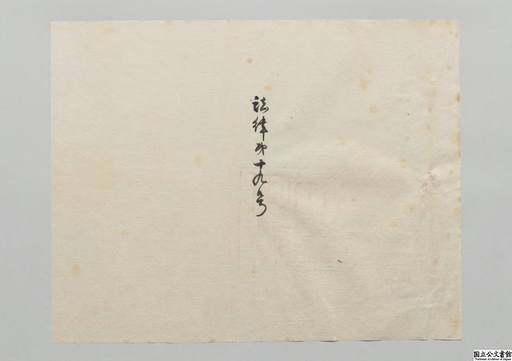 法律第十九号
国立公文書館
National Archives of Japan